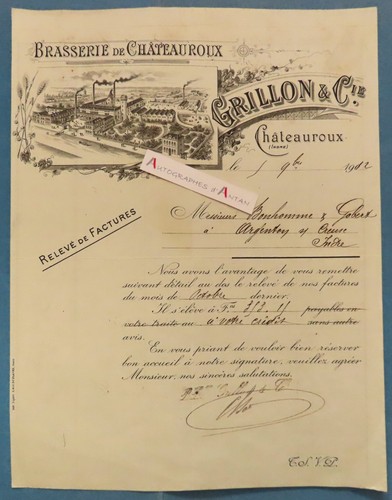 BRASSERIE DE CHÂTEAUROUX
GRILLON & CIE
Châteauroux
(INDRE)
AUTOGRAPHES D'ANTAN
le 9bre 1902
RELEVÉ DE FACTURES
Messieurs Bonhomme & Gobert
à Argenton s/ Creuse
Indre
Nous avons l'avantage de vous remettre
suivant détail au dos le relevé de nos factures
du mois de Octobre dernier.
Il s'élève à Frs payables en
votre traite au à votre crédit sans autre
avis.
En vous priant de vouloir bien réserver
bon accueil à notre signature, veuillez agréer
Monsieur, nos sincères salutations.
T.S.V.P.